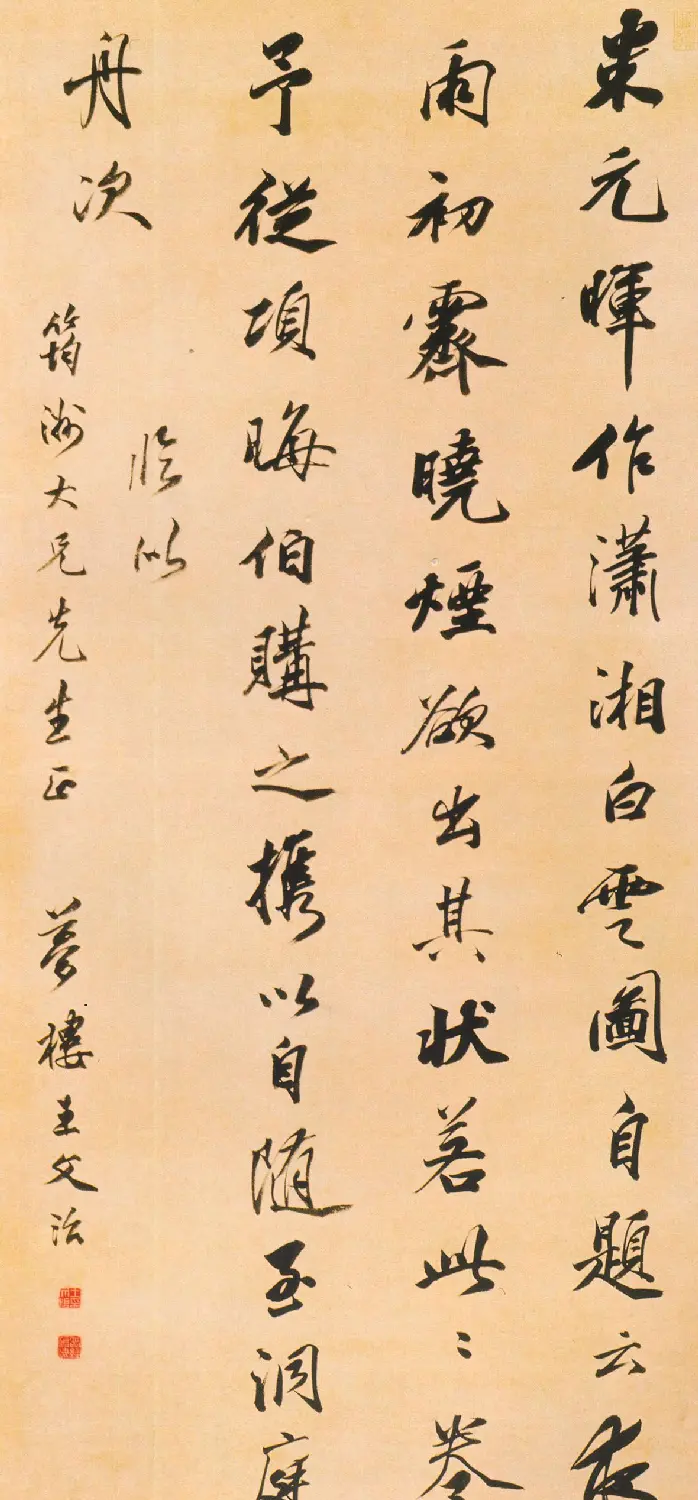 米元暉作瀟湘白雲圖自題云夜
雨初霽曉煙欲出其狀若此〻卷
予從項晦伯購之攜以自隨至洞庭
舟次
臨似
筠洲大兄先生正
夢樓王文治